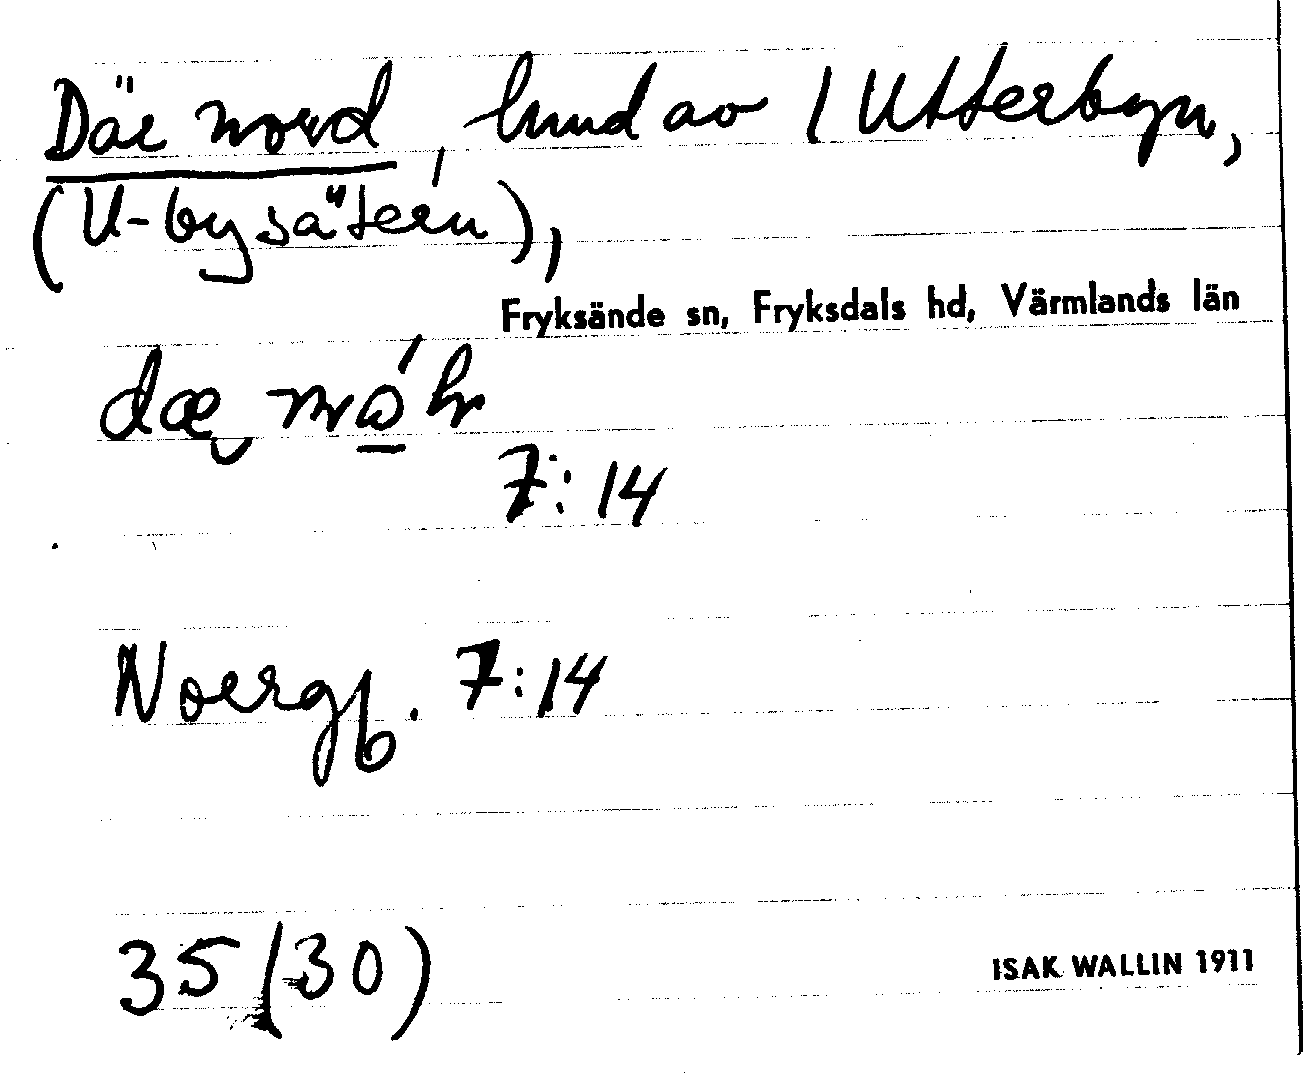 Där nord, hmd av 1 Utterbyn,
(U-bysätern),
Fryksände sn, Fryksdals hd, Värmlands län
dæ
7:14
7:14
35 (30)
ISAK WALLIN 1911